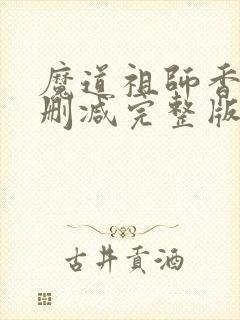 魔道祖師香
刪减完整版
古井貢酒